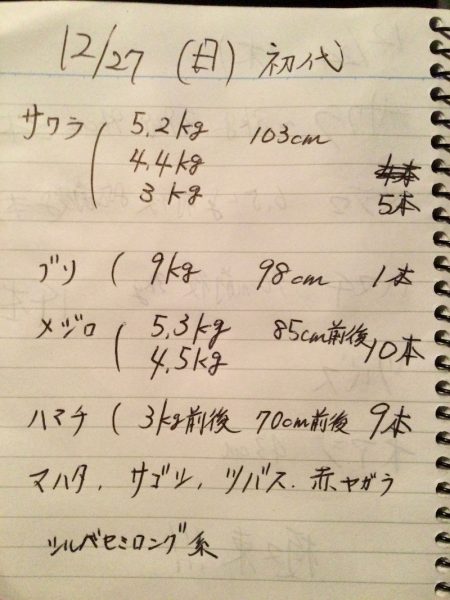 12/27 (日) 初代
サワラ ( 5,2kg 103cm
4,4kg
3kg
5本
ブリ ( 9kg 98cm 1本
メジロ ( 5,3kg 85cm前後 10本
4,5kg
ハマチ ( 3kg前後 70cm前後 9本
マハタ, サゴシ, ツバス. 赤ヤガラ
シルベセミロング系